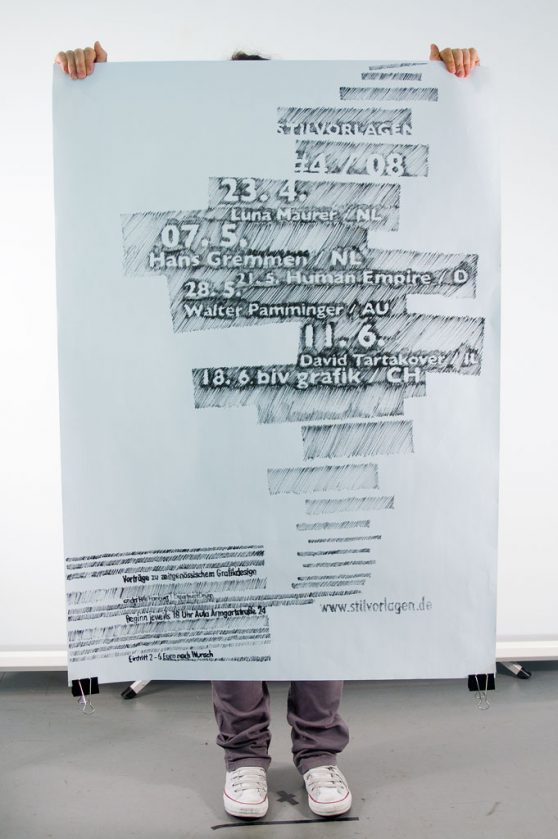 STILVORLAGEN
#4 / 08
23. 4.
Luna Maurer / NL
07. 5.
Hans Gremmen / NL
21. 5. Human Empire / D
28. 5.
Walter Pamminger / AU
11. 6.
David Tartakover / IL
18. 6. biv grafik / CH
Vorträge zu zeitgenössischem Grafikdesign
Beginn jeweils 18 Uhr Aula Armgartstraße 24
www.stilvorlagen.de
Eintritt 2 - 6 Euro nach Wunsch